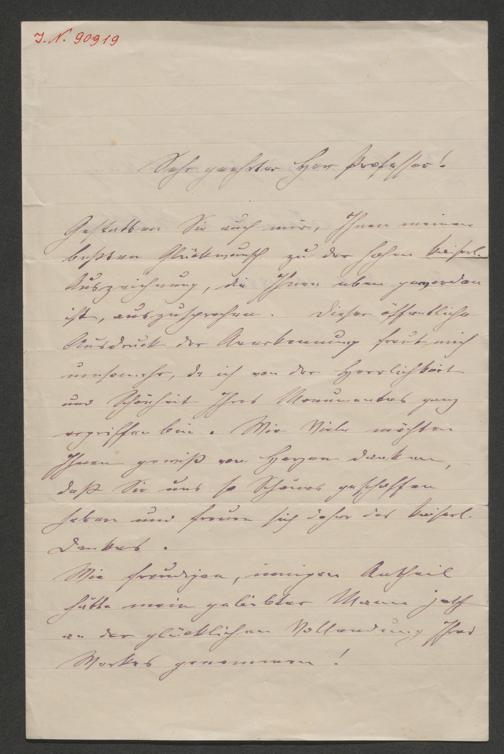 J. N. 90919
Sehr geehrter Herr Professor!
Gestatten Sie auch mir, Ihnen meinen
besten Glückwunsch zu der hohen kaiserl.
Auszeichnung, die Ihnen eben geworden
ist, auszusprechen. Dieser öffentliche
Ausdruck der Anerkennung freut mich
umsomehr, da ich von der Herrlichkeit
und Schönheit Ihres Monumentes ganz
ergriffen bin. Wie Viele möchten
Ihnen gewiß von Herzen danken,
daß Sie uns so Schönes geschaffen
haben und freuen sich daher des kaiserl.
Dankes.
Wie freudigen, innigen Antheil
hätte mein geliebter Mann jetzt
an der glücklichen Vollendung Ihres
Werkes genommen!